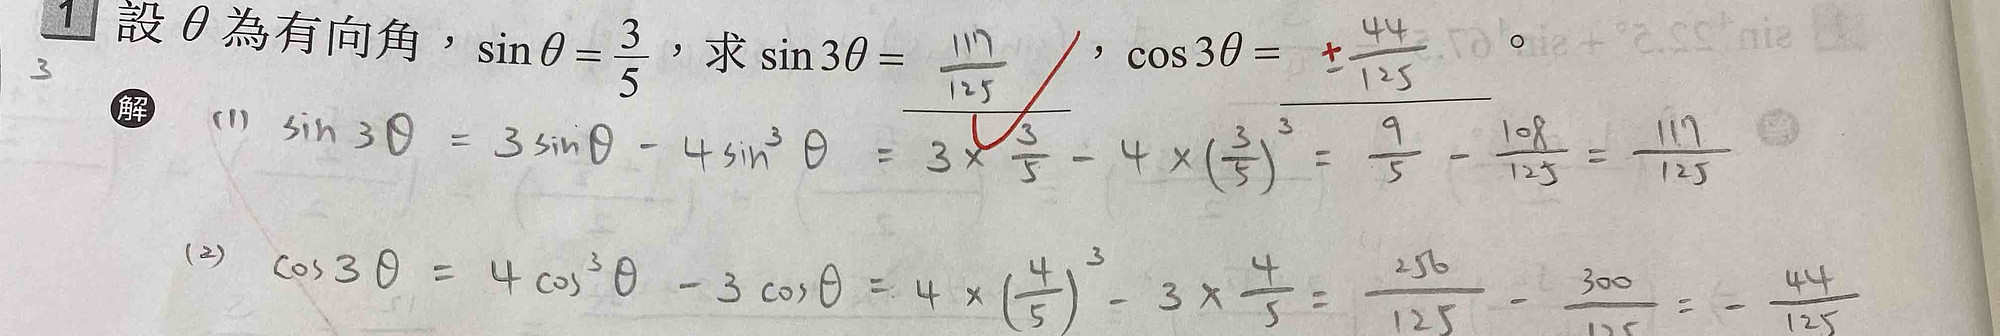 1 設 θ 為有向角，sinθ = 3/5，求 sin3θ = 117/125，cos3θ = ±44/125。
3
解 (1) sin3θ = 3sinθ - 4sin³θ = 3×3/5 - 4×(3/5)³ = 9/5 - 108/125 = 117/125
(2) cos3θ = 4cos³θ - 3cosθ = 4×(4/5)³ - 3×4/5 = 256/125 - 300/125 = -44/125